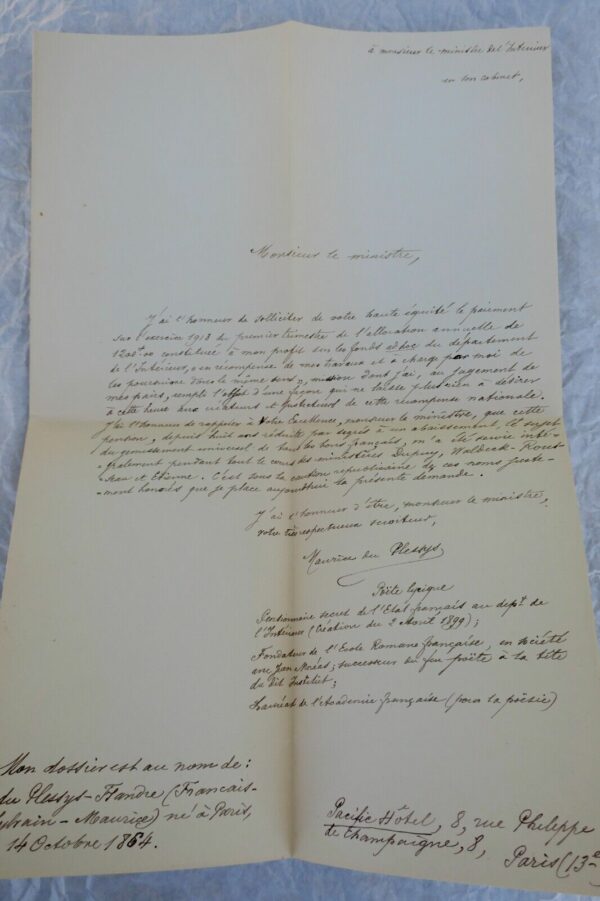 à monsieur le ministre de l'Intérieur
en son cabinet,
Monsieur le ministre,
J'ai l'honneur de solliciter de votre haute équité le paiement
sur l'exercice 1913 du premier trimestre de l'allocation annuelle de
constituée à mon profit sur les fonds ad hoc du département
de l'Intérieur, « en récompense de mes travaux et à charge par moi de
les poursuivre dans le même sens », mission dont j'ai, au jugement de
mes pairs, rempli l'objet d'une façon qui ne laisse plus rien à désirer
à cette heure aux créateurs et de cette récompense nationale.
J'ai l'honneur de rappeler à Votre Excellence, monsieur le ministre, que cette
pension, depuis huit ans réduite par degrés à un abaissement, le sujet
du gémissement universel de tous les bons français, m'a été servie inté-
-gralement pendant tout le cours des ministères Dupuy, Waldeck-Rous-
-seau et Etienne. C'est sous la caution républicaine de ces noms juste-
-ment honorés que je place aujourd'hui la présente demande.
J'ai l'honneur d'être, monsieur le ministre,
votre très respectueux serviteur,
Maurice du Plessys
Poëte lyrique
Pensionnaire secret de l'Etat français au dépt de
l'Intérieur (Création du 2 Août 1899);
Fondateur de l'Ecole Romane française, en société
avec Jean Moréas; successeur du feu poëte à la tête
du dit Institut;
Lauréat de l'Académie française (pour la poësie)
Mon dossier est au nom de:
du Plessys-Flandre (François-
Sylvain-Maurice) né à Paris,
14 Octobre 1864.
Pacific Hôtel, 8, rue Philippe
de Champaigne, 8,
Paris (13e